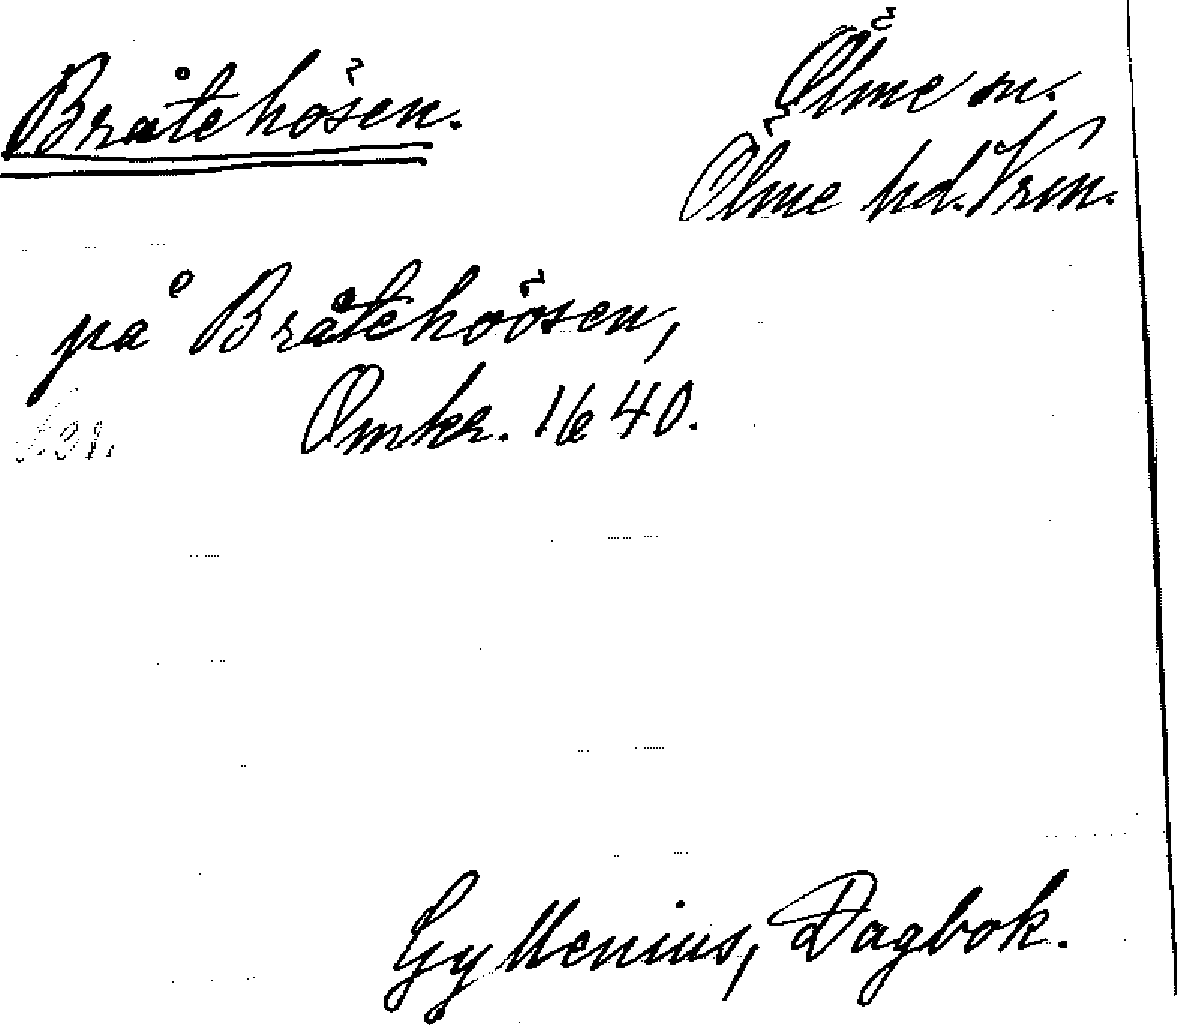 Bråtehösen.
Ölme sn.
Ölme hd. Vrm.
på Bråtehöösen,
Omkr. 1640.
Gyllenius, Dagbok.